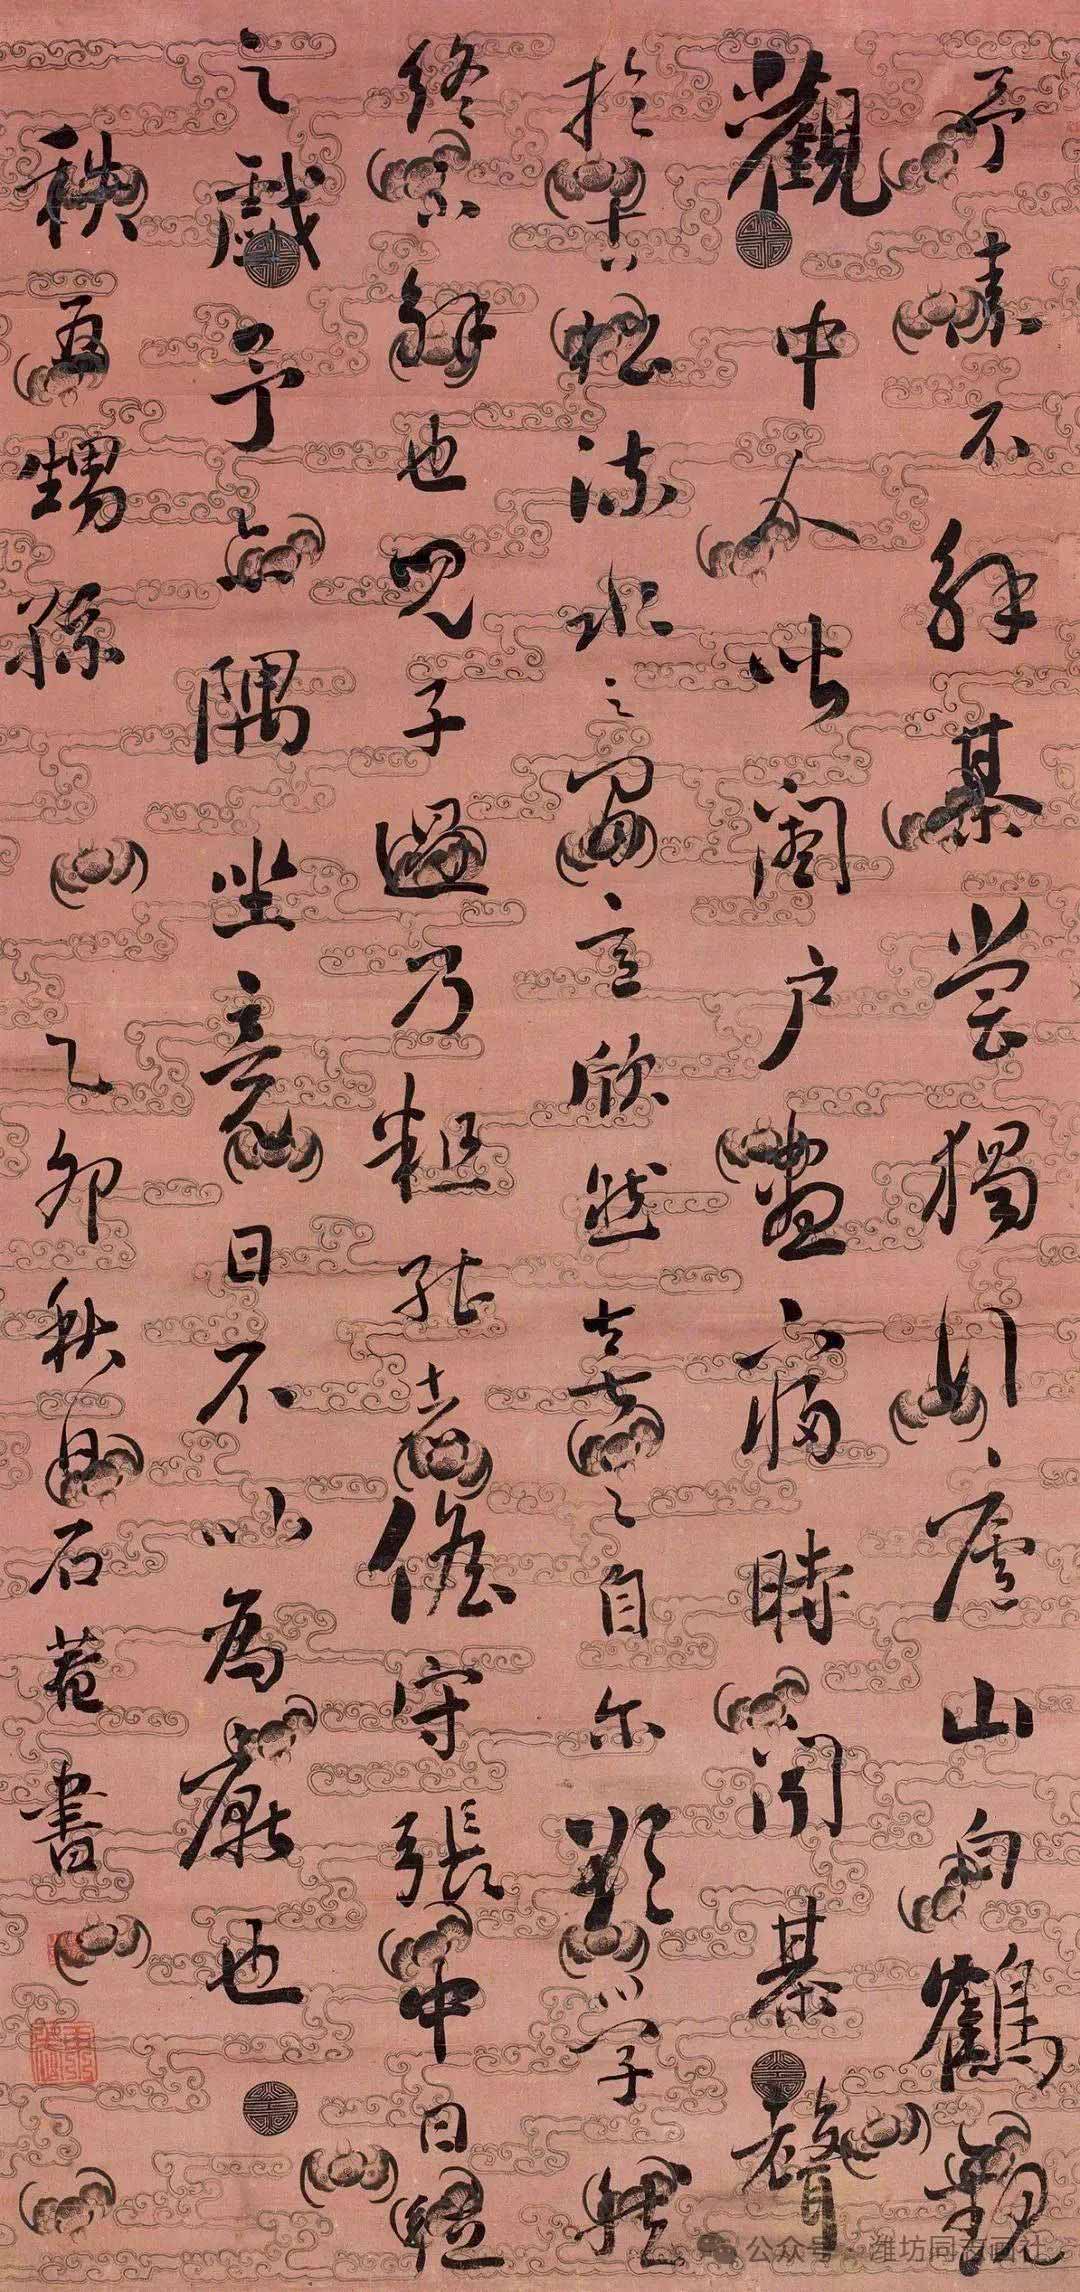 予素不解棊嘗獨行廬山白鶴觀
觀中人皆闔戶晝寢時聞棊聲
於古松流水之間意欣然喜之自爾欲學然
終不解也兒子過乃粗能者儋守張中日從
之戲予亦隅坐竟日不以為厭也
秩五甥孫 乙卯秋日石菴書
公众号